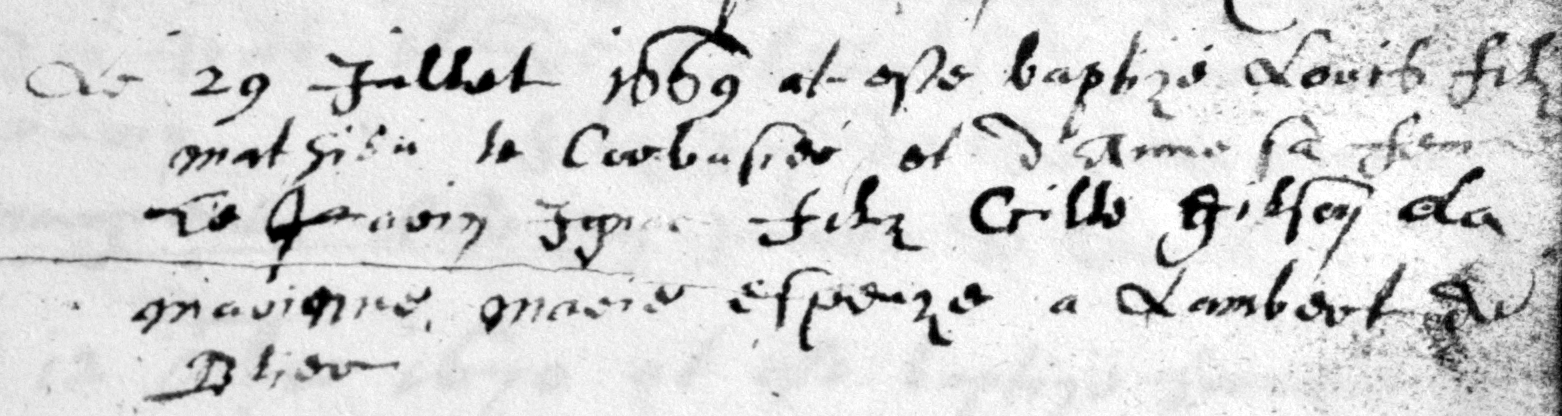 Le 29 Juillet 1669 at este baptizé Louis filz
mathieu le Corbusier et d'Anne sa fem
Le parin filz Gille Gilson la
marienne marie espeuze a Lambert de
Blier